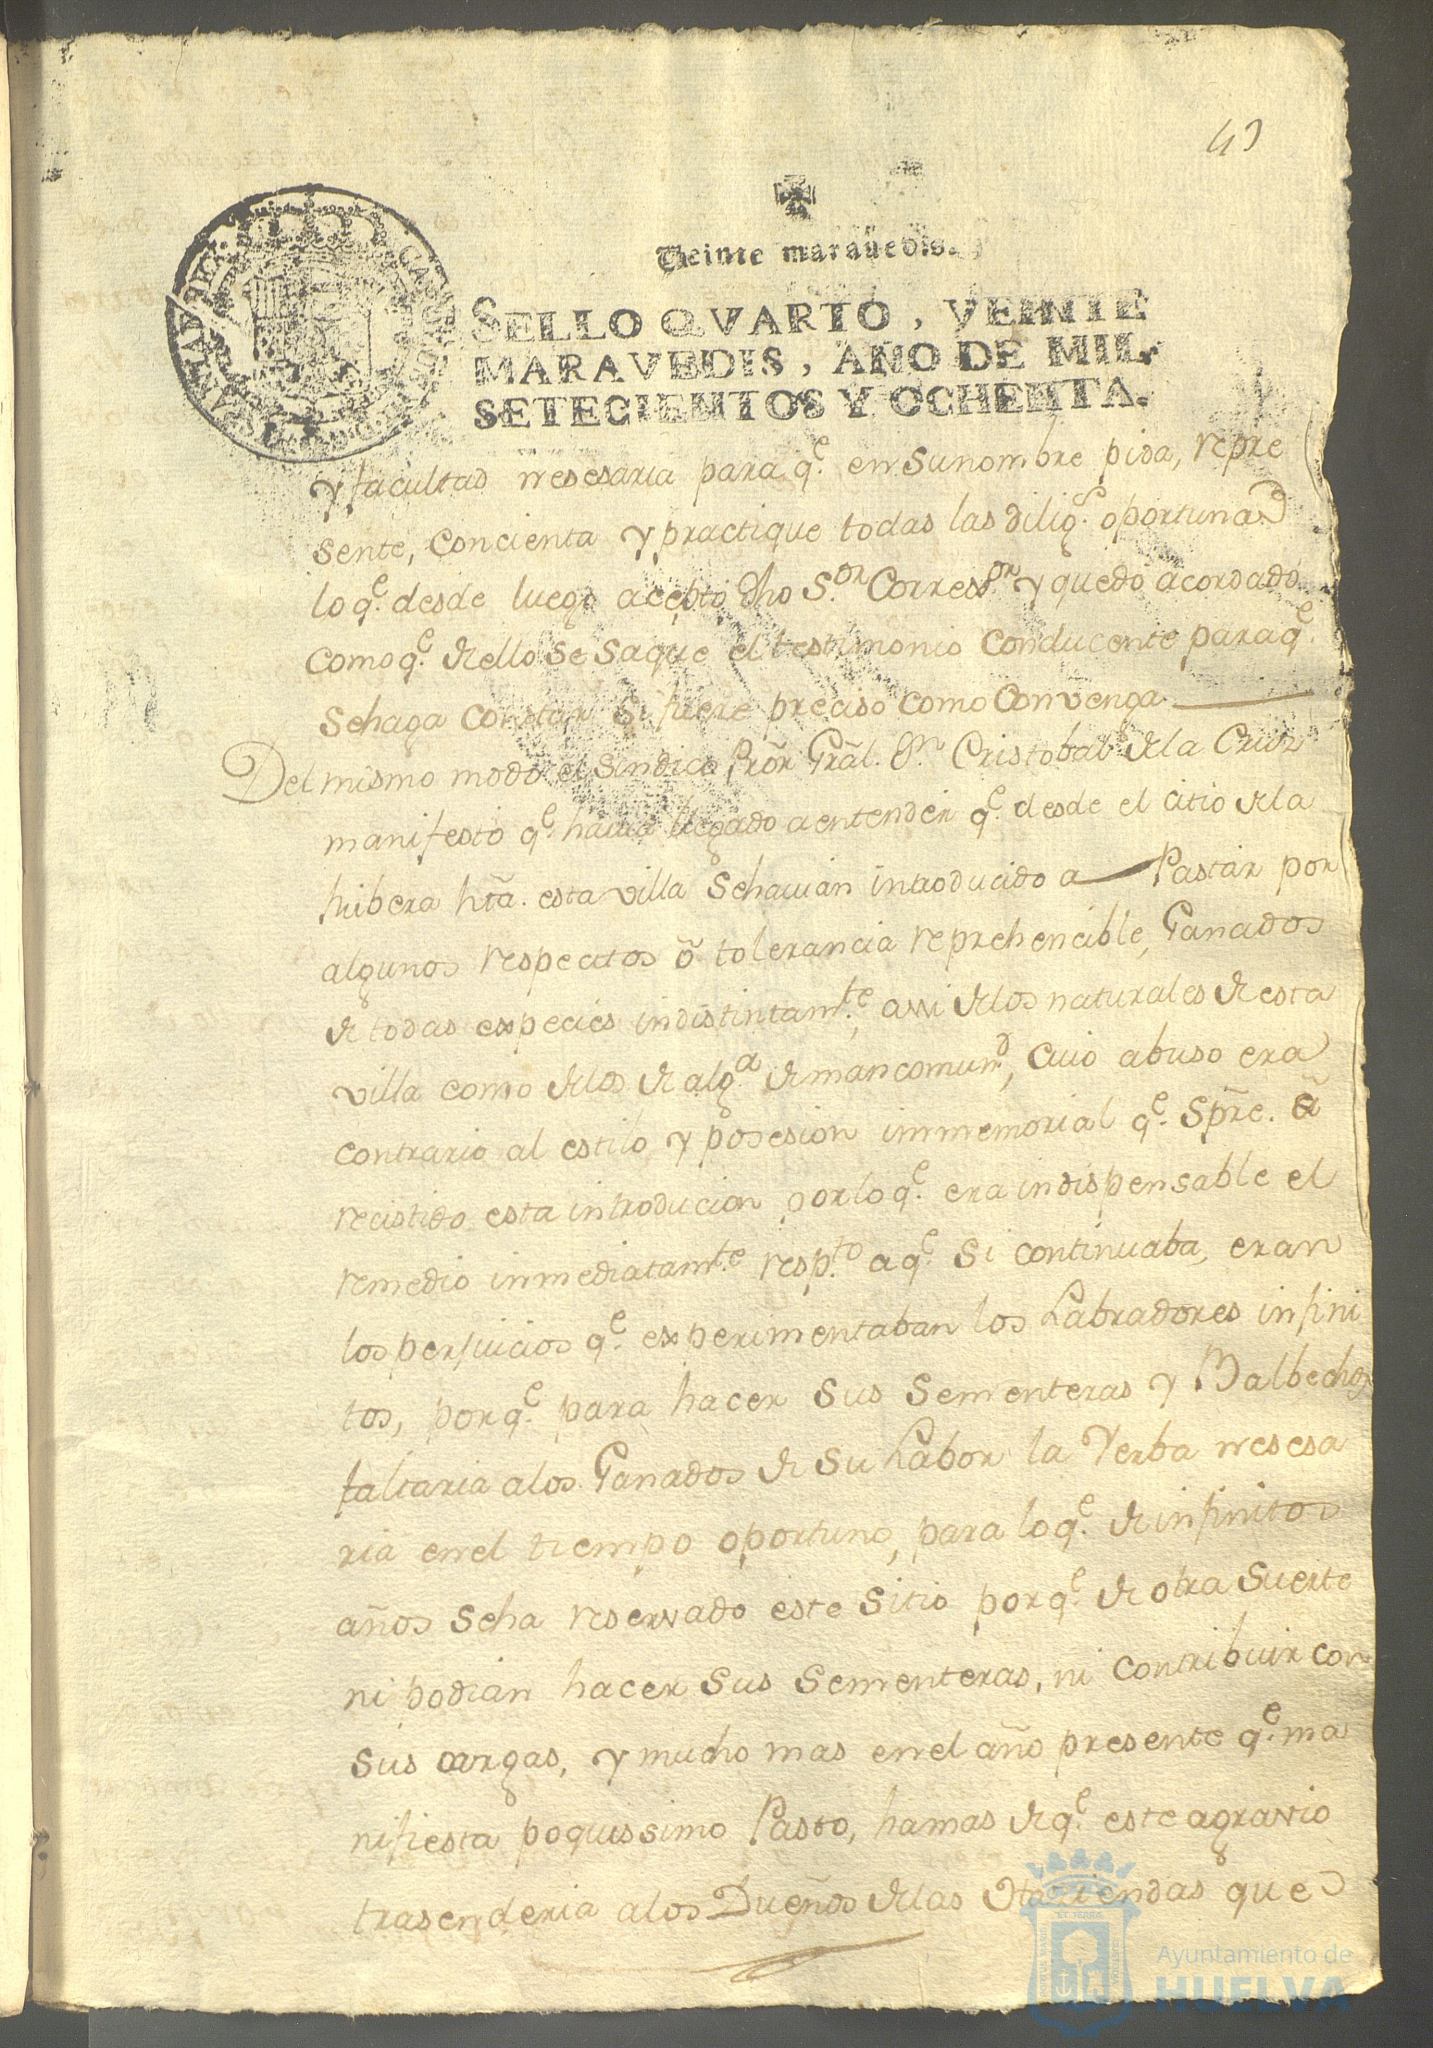 43
Veinte marauedis.
SELLO QVARTO, VEINTE
MARAVEDIS, AÑO DE MIL
SETECIENTOS Y OCHENTA.
y facultad nesesaria para q.e en su nombre pida, repre
sente, concienta y practique todas las dilig.s oportunas
lo q.e desde luego aceptó dho S.or Corres.or y quedó acordado
como q.e de ello se saque el testimonio conducente para q.e
se haga constar si fuere preciso como Convenga
Del mismo modo el Sindico Prōr Grāl. D.n Cristobal de la Cruz
manifestó q.e havia llegado a entender q.e desde el citio de la
Ribera hta. esta villa se havian introducido a Pastar por
algunos respectos ō tolerancia reprehencible, Ganados
de todas expecies indistintam.te, assi de los naturales de esta
villa como de los de alg.a de mancomun.d, cuio abuso era
contrario al estilo y posesion inmemorial q.e Spre. ā
recistido esta introducion por lo q.e era indispensable el
remedio inmediatam.te resp.to a q.e si continuaba, eran
los perjuicios q.e experimentaban los Labradores infini
tos, porq.e para hacer sus sementeras y Balbechos
faltaria a los Ganados de su Labor la Yerba nesesa
ria en el tiempo oportuno, para lo q.e de infinitos
años se ha reservado este sitio porq.e de otra suerte
ni podian hacer sus sementeras, ni contribuir con
sus cargas, y mucho mas en el año presente q.e ma
nifiesta poquissimo Pasto, hamas de q.e este agravio
trasenderia a los Dueños de las Haziendas que
Ayuntamiento de
HUELVA